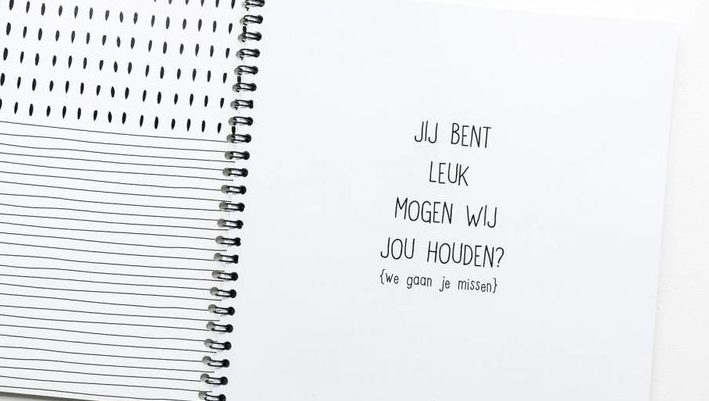 JIJ BENT
LEUK
MOGEN WIJ
JOU HOUDEN?
{we gaan je missen}